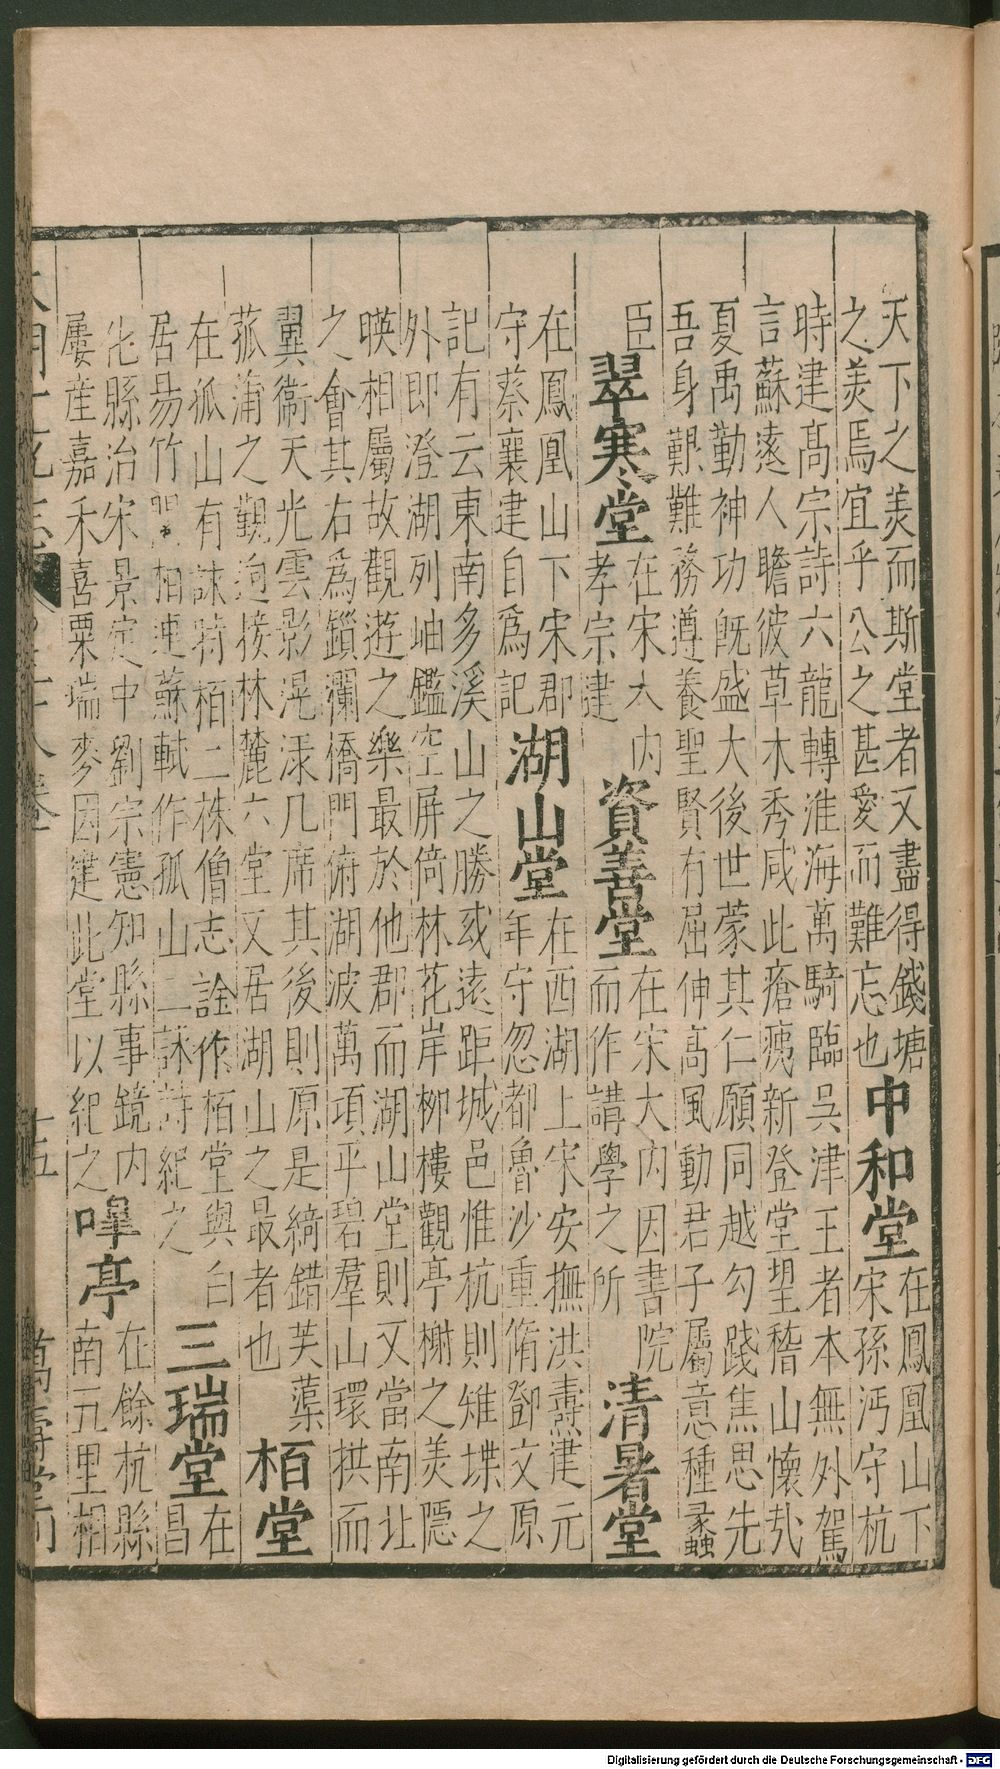 天下之羙而斯堂者又盡得錢塘
之羙焉宜乎公之甚愛而難忘也
中和堂
在鳳凰山下
宋孫沔守杭
時建髙宗詩六龍轉淮海萬騎臨吳津王者本無外駕
言蘇遠人瞻彼草木秀咸此瘡痍新登堂望稽山懷㢤
夏禹勤神功旣盛大後世蒙其仁願同越勾踐焦思先
吾身艱難務遵養聖賢有屈伸髙風動君子屬意種蠡
臣
翠寒堂
在宋大内
孝宗建
資善堂
在宋大内因書院
而作講學之所
清暑堂
在鳳凰山下宋郡
守蔡襄建自爲記
湖山堂
在西湖上宋安撫洪燾建元
年守忽都魯沙重脩鄧文原
記有云東南多溪山之勝或遠距城邑惟杭則雉堞之
外即澄湖列岫鑑空屏倚林花岸栁樓觀亭榭之羙隱
暎相屬故觀遊之樂最於他郡而湖山堂則又當南北
之會其右爲鎖瀾僑門俯湖波萬項平碧羣山環拱而
翼衞天光雲影滉漾几席其後則原是綺錯芙蕖
菰蒲之觀迤接林麓六堂又居湖山之最者也
栢堂
在孤山有詠特栢二株僧志詮作栢堂與白
居昜竹閣相連蘇軾作孤山二詠詩紀之
三瑞堂
在
昌
化縣治宋景定中劉宗憲知縣事鏡内
屢産嘉禾喜粟瑞麥因建此堂以紀之
嗶亭
在餘杭縣
南五里相
大明一統志
十五
萬壽堂刊
Digitalisierung gefördert durch die Deutsche Forschungsgemeinschaft - DFG